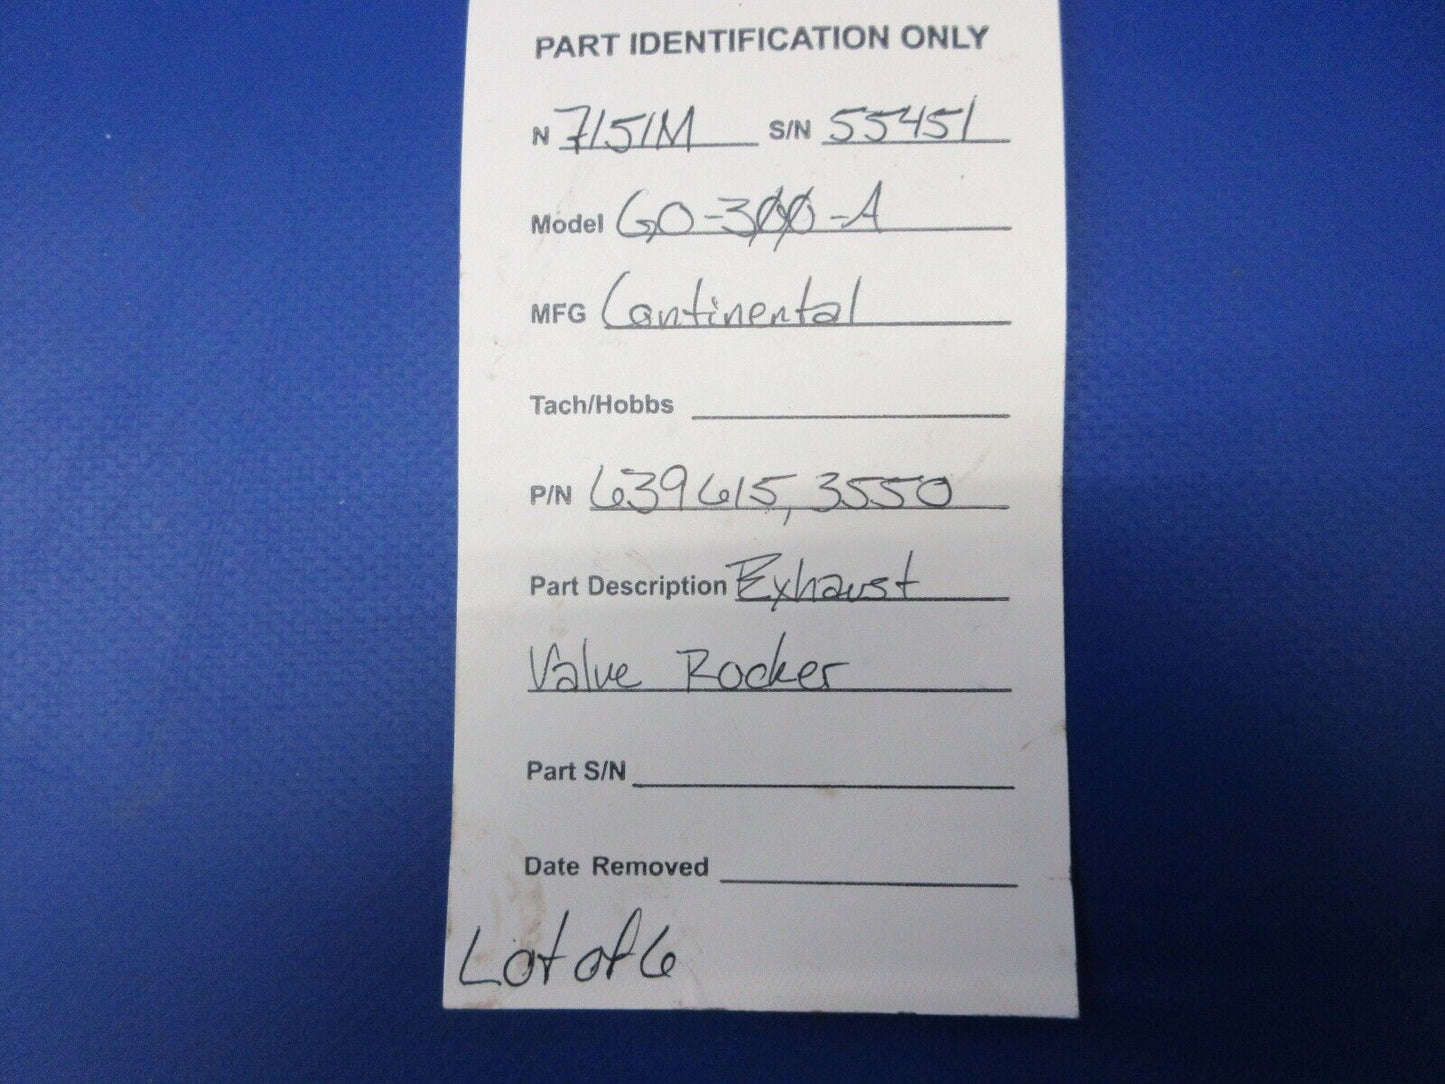 PART IDENTIFICATION ONLY
N 7151M S/N 55451
Model GO-300-A
MFG Continental
Tach/Hobbs
P/N 639615, 3550
Part Description Exhaust
Valve Rocker
Part S/N
Date Removed
Lot of 6